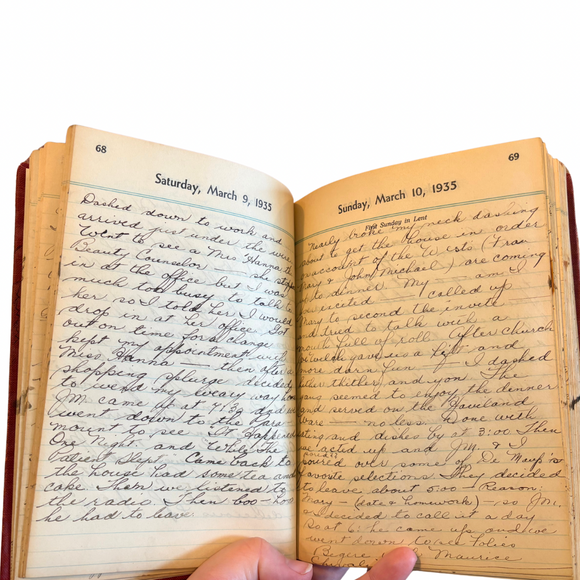 68
Saturday, March 9, 1935
Dashed down to work and
arrived just under the wire.
Went to see a Miss Hanna the
Beauty Counselor — she stopped
in at the office but I was
much too busy to talk to
her so I told her I would
drop in at her office. Got
out on time for a change
kept my appointment with
Miss Hanna — then after a
shopping splurge decided
to wend my weary way home
JM came up at 7:30 and we
went down to the Para-
mount to see "It Happened
One Night" and "While the
Patient Slept". Came back to
the house had some tea and
cake. Then we listened to
the radio. Then boo-hoo
he had to leave
69
Sunday, March 10, 1935
First Sunday in Lent
Nearly broke my neck dashing
about to get the house in order
on account of the Wests (Fran
Mary & John Michael) are coming
to dinner. My — am I
excited I called up
Mary to second the invite
and tried to talk with a
mouth full of roll. After church
Welch gave us a lift and
more darn fun — I dashed
hither thither and yon. The
seemed to enjoy the dinner
and served on the Haviland
ware — no less. Done with
eating and dishes by at 3:00 Then
we acted up and J.M. & I
poured over some of De Maup's
favorite selections. They decided
to leave about 5:00 — Reason
Mary — (date & homework) — so J.M.
& I decided to call it a day
So at 6: he came up and we
went down to see Folies
Bergere Maurice
Chevalier